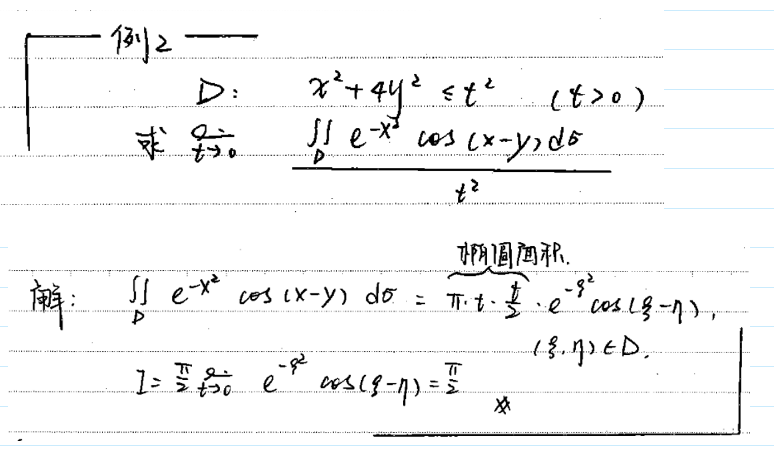 例2
D: x² + 4y² ≤ t² (t>0)
求 lim_{t→0} ∬_D e^{-x²} cos(x-y)dσ / t²
椭圆面积.
解: ∬_D e^{-x²} cos(x-y) dσ = π·t·t/2·e^{-ξ²}cos(ξ-η),
(ξ,η)∈D.
I = π/2 lim_{t→0} e^{-ξ²} cos(ξ-η) = π/2
※